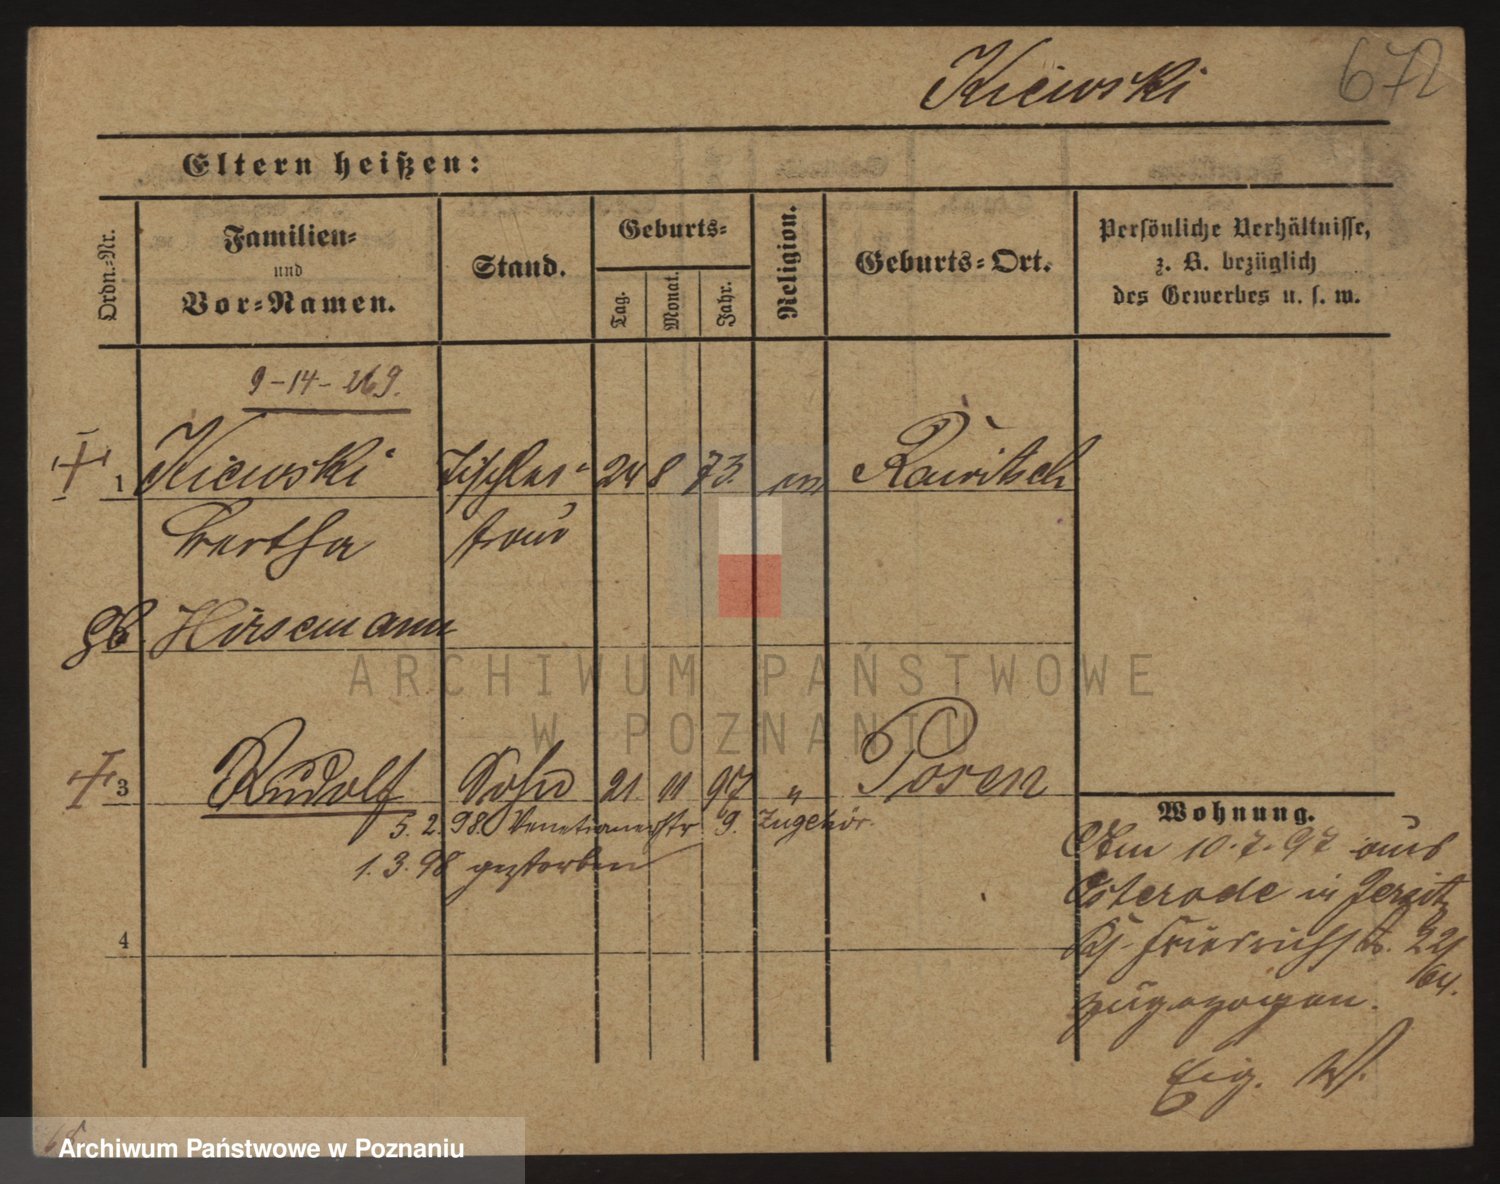 Kiewski 672
Eltern heißen:
Ordn.-Nr.
Familien-
und
Vor-Namen.
Stand.
Geburts-
Tag.
Monat.
Jahr.
Religion.
Geburts-Ort.
Persönliche Verhältnisse,
z. B. bezüglich
des Gewerbes u. s. w.
9-14-
1 Kiewski Tischler- 24 8 73. Rawitsch
Bertha frau
gb. Hirsemann
ARCHIWUM PAŃSTWOWE
W POZNANIU
3 Rudolf Sohn 21 11 97 " Posen
5. 2. 98 Venetianerstr 9. Zugehör.
1. 3. 98 gestorben
4
Wohnung.
Am 10. 7. 97 aus
Osterode in Jersitz
Friedrichstr. 22/
64.
zugezogen.
Eig. W.
Archiwum Państwowe w Poznaniu